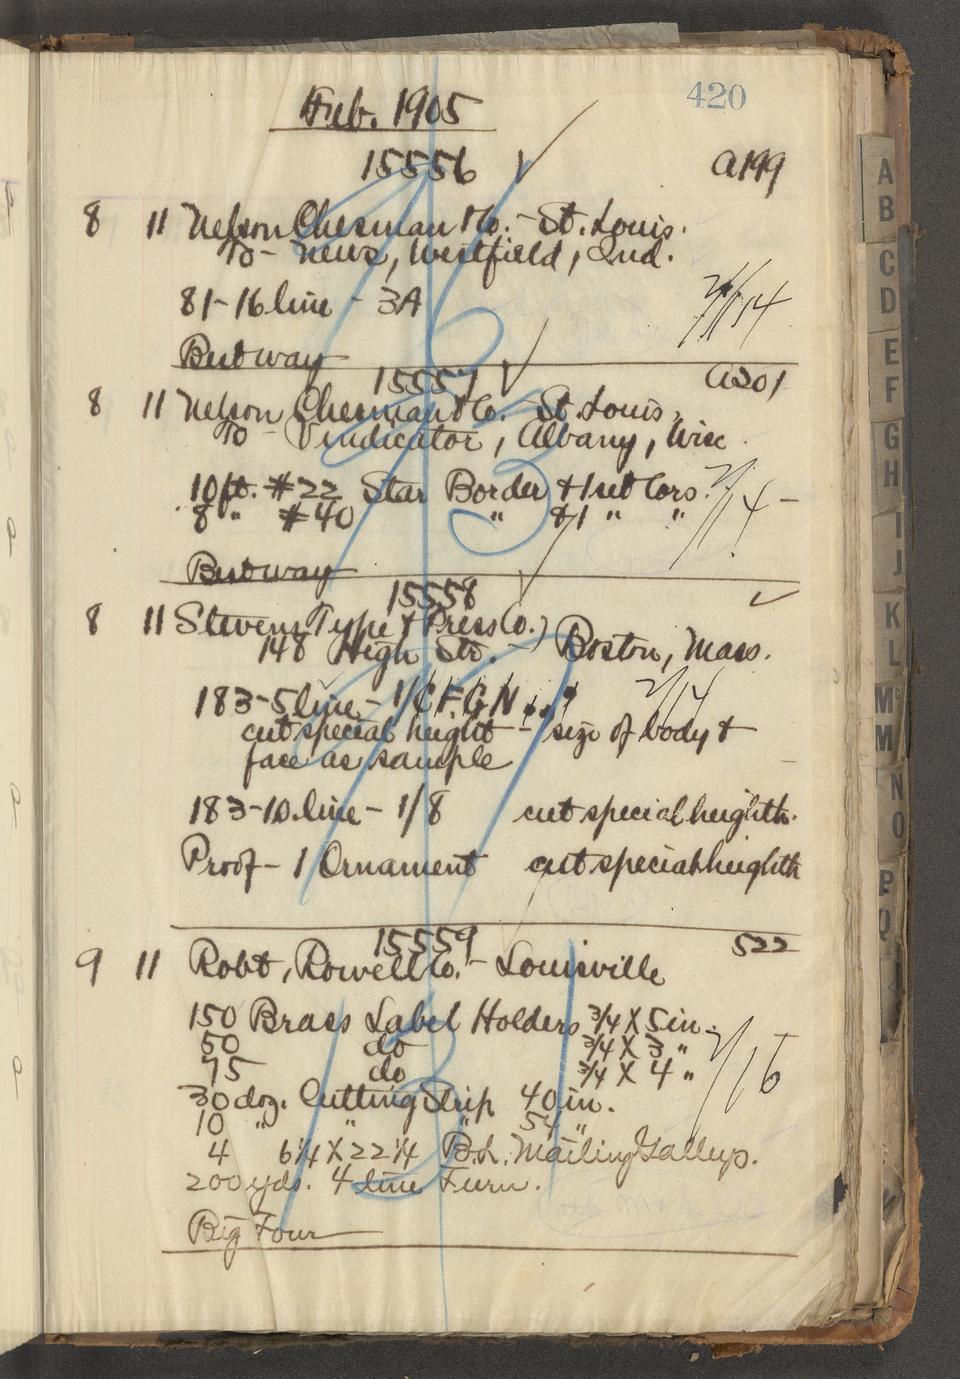 420
Feb. 1905
15556 ✓ A199
8 11 Nelson Chesman & Co. - St. Louis.
To - News, Westfield, Ind.
81 - 16 line - 3A 2/14
Bestway
15557 ✓ A201
8 11 Nelson Chesman & Co. - St. Louis,
To - Vindicator, Albany, Wisc
10 ft. #22 Star Border & 1 set Cors. 2/14 -
8 " #40 " & 1 " "
Bestway
15558 ✓
8 11 Stevens Type & Press Co.)
148 High Str. -) Boston, Mass.
183 - 5 line - 1/C F G N . , ' 2/14
cut special height - size of body &
face as sample
183 - 10 line - 1/8 cut special heighth.
Proof - 1 Ornament cut special heighth
15559 522
9 11 Robt. Rowell Co. - Louisville
150 Brass Label Holders 3/4 X 5 in.
50 do 3/4 X 3 " 2/16
75 do 3/4 X 4 "
30 doz. Cutting Strip 40 in.
10 " " " 54 "
4 6 1/4 X 22 1/4 B.L. Mailing Galleys.
200 yds. 4 line Furn.
Big Four
A
B
C
D
E
F
G
H
I
J
K
L
Mc
M
N
O
P
Q